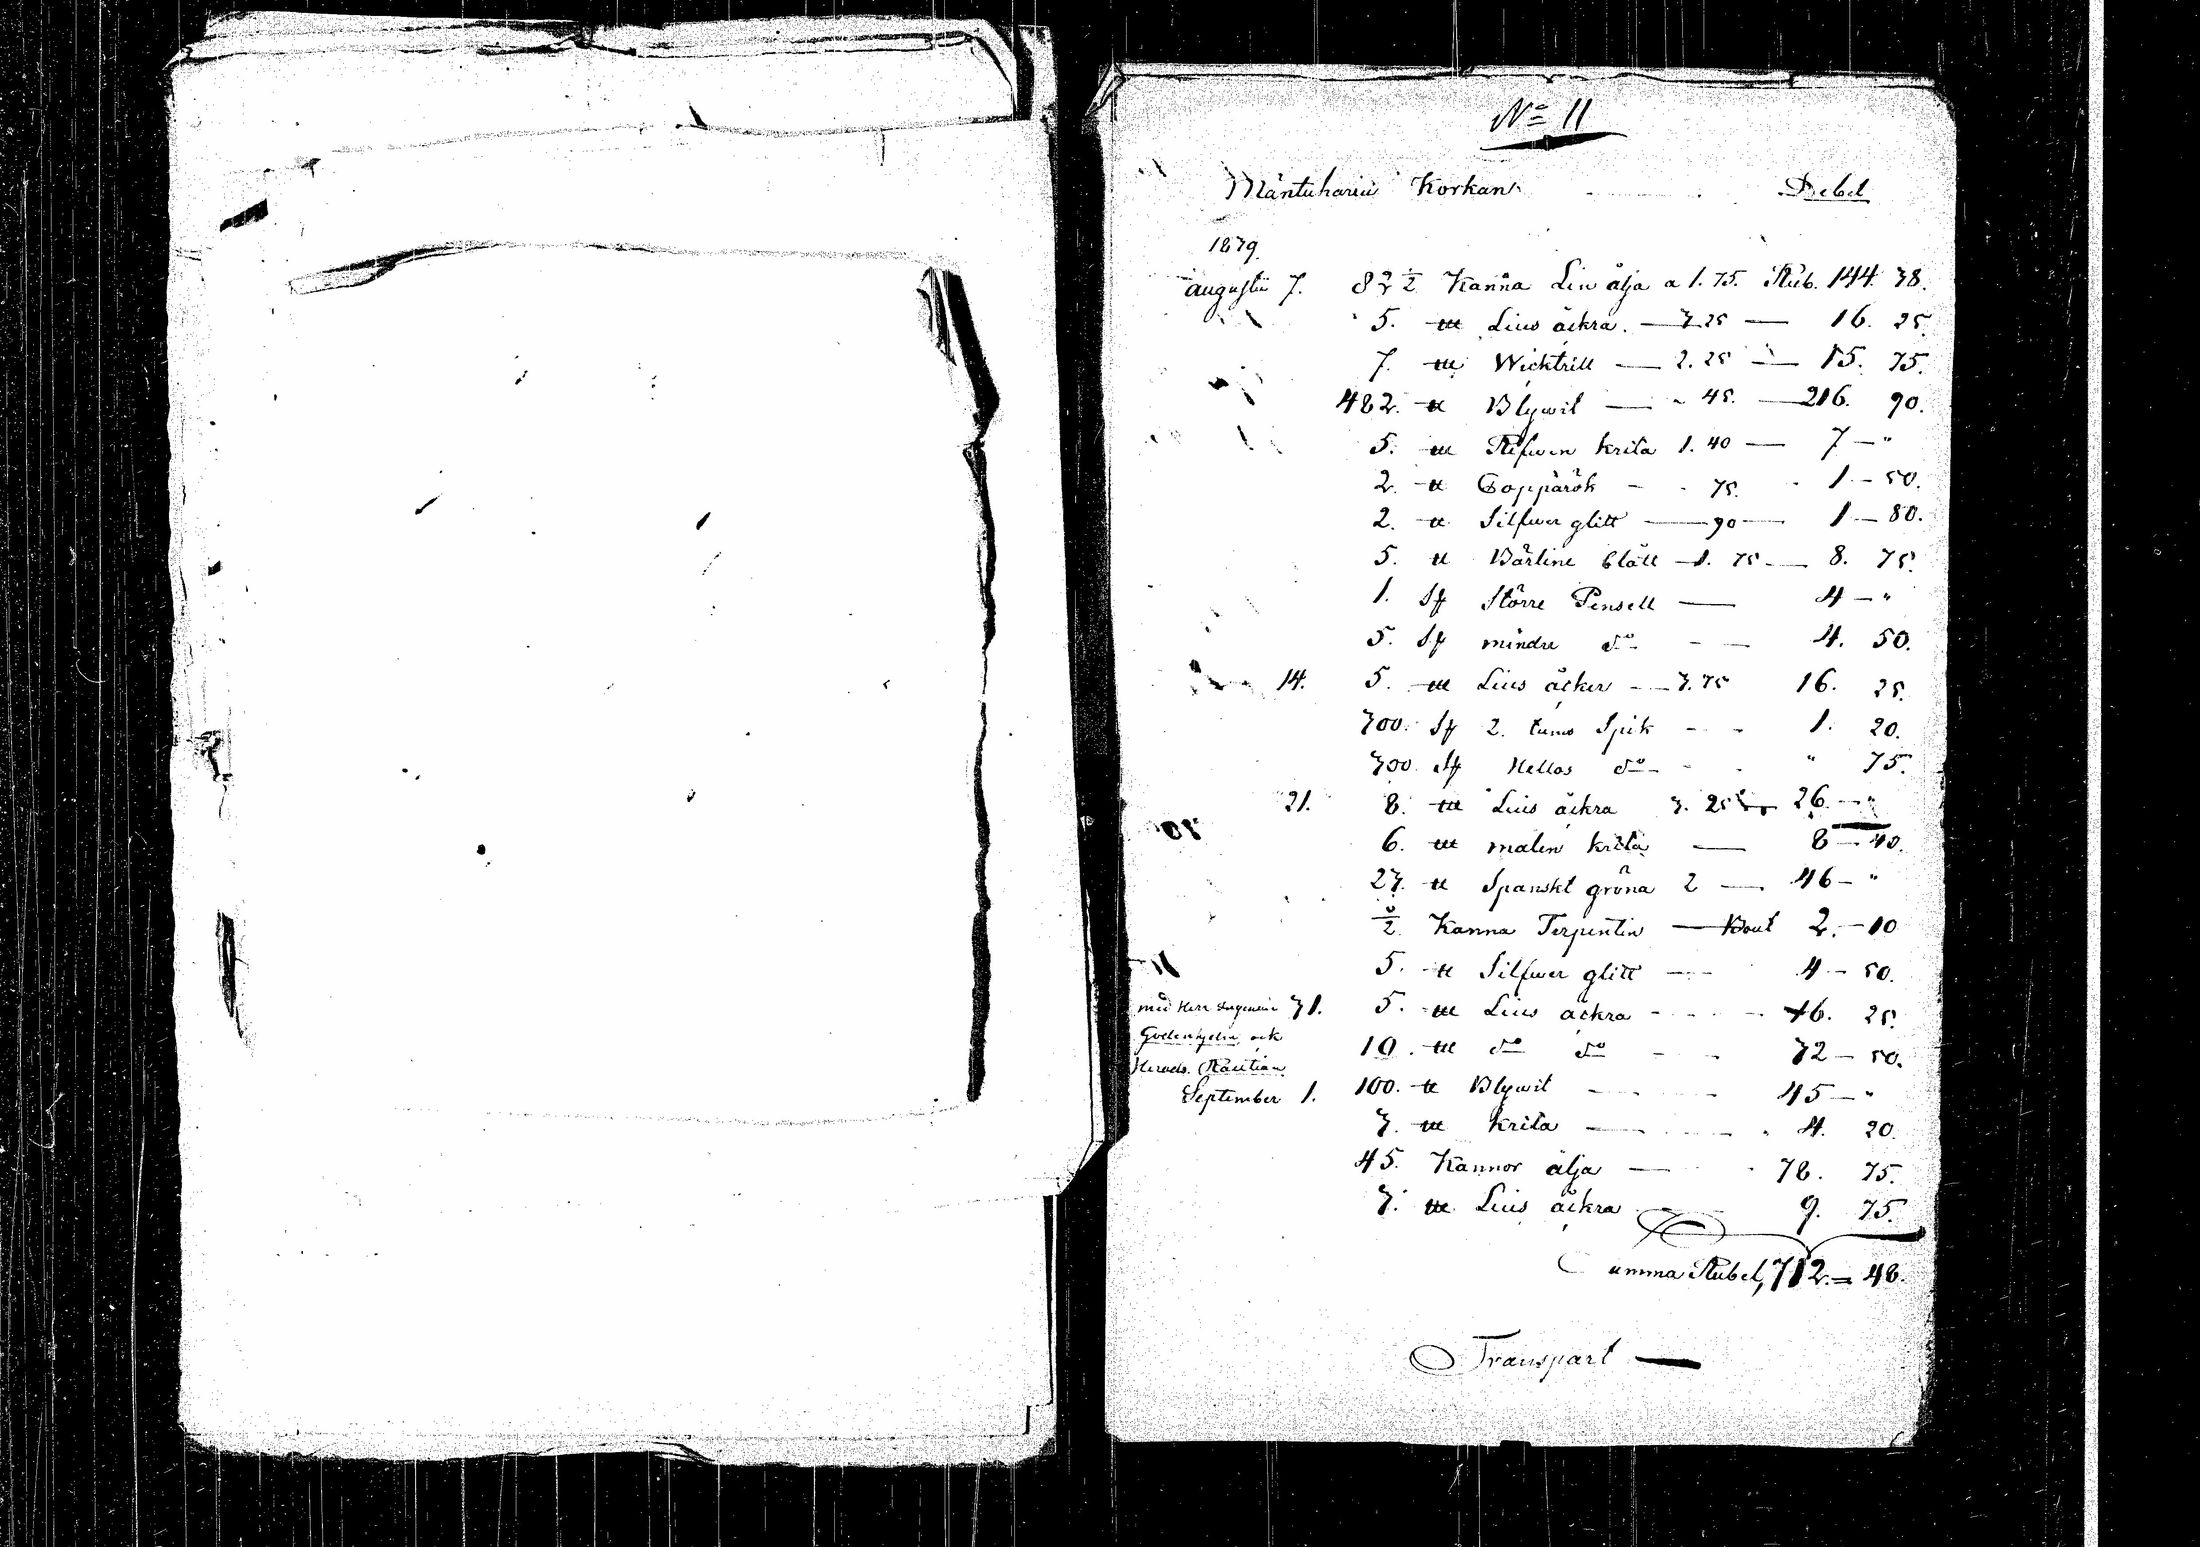 No 11
Mäntuharin Korkan Debet
1839.
augustii 7. 82 1/2 Kanna Lin ålja a 1. 75. Rub. 144. 38.
5. llt Lius åckra. — 3.25 — 16. 25.
7. llt Wicktrill — 2.25 — 15. 75.
482. lt Blywit — 45. — 216. 90.
5. llt Refwen krita 1.40 — 7 — "
2. lt Copparök - 75. 1 - 50.
2. lt Silfwer glitt — 90 — 1 — 80.
5. lt Bärline blått — 1. 75. — 8. 75.
1. St Större Pensell — 4 — "
5. St mindre do - — 4. 50.
14. 5. llt Lius åcker - — 3.25 16. 25.
300. St 2. tums Spik - - 1. 20.
300. St Hellos do - - " 75.
21. 8. llt Lius åckra 3. 25 — 26. — "
6. llt malen krita — 8 — 40.
23. lt Spanskt gröna 2 — 46 - "
1/2 Kanna Terpentin — 2. - 10
5. lt Silfwer glitt — 4 - 50.
med Herr 31. 5. llt Lius åckra - - - 16. 25.
ock 10. llt do do - - 32 - 50.
Herads
September 1. 100. lt Blywit - - - 45 — "
3. llt krita — - - 4. 20.
45. Kannor ålja — 78. 75.
3. llt Lius åckra 9. 75.
Summa Rubel, 782. = 48.
Transpart —